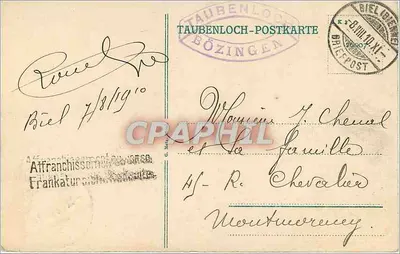 TAUBENLOCH-POSTKARTE
TAUBENLOCH
BÖZINGEN
BIEL (BIENNE)
-8.VIII.10.XI-
BRIEFPOST
Biel 7/8/1910
Monsieur J. Chenal
et sa famille
45- R. Chevalier
Montmorency
Affranchissement
Frankatur
CPAPHIL